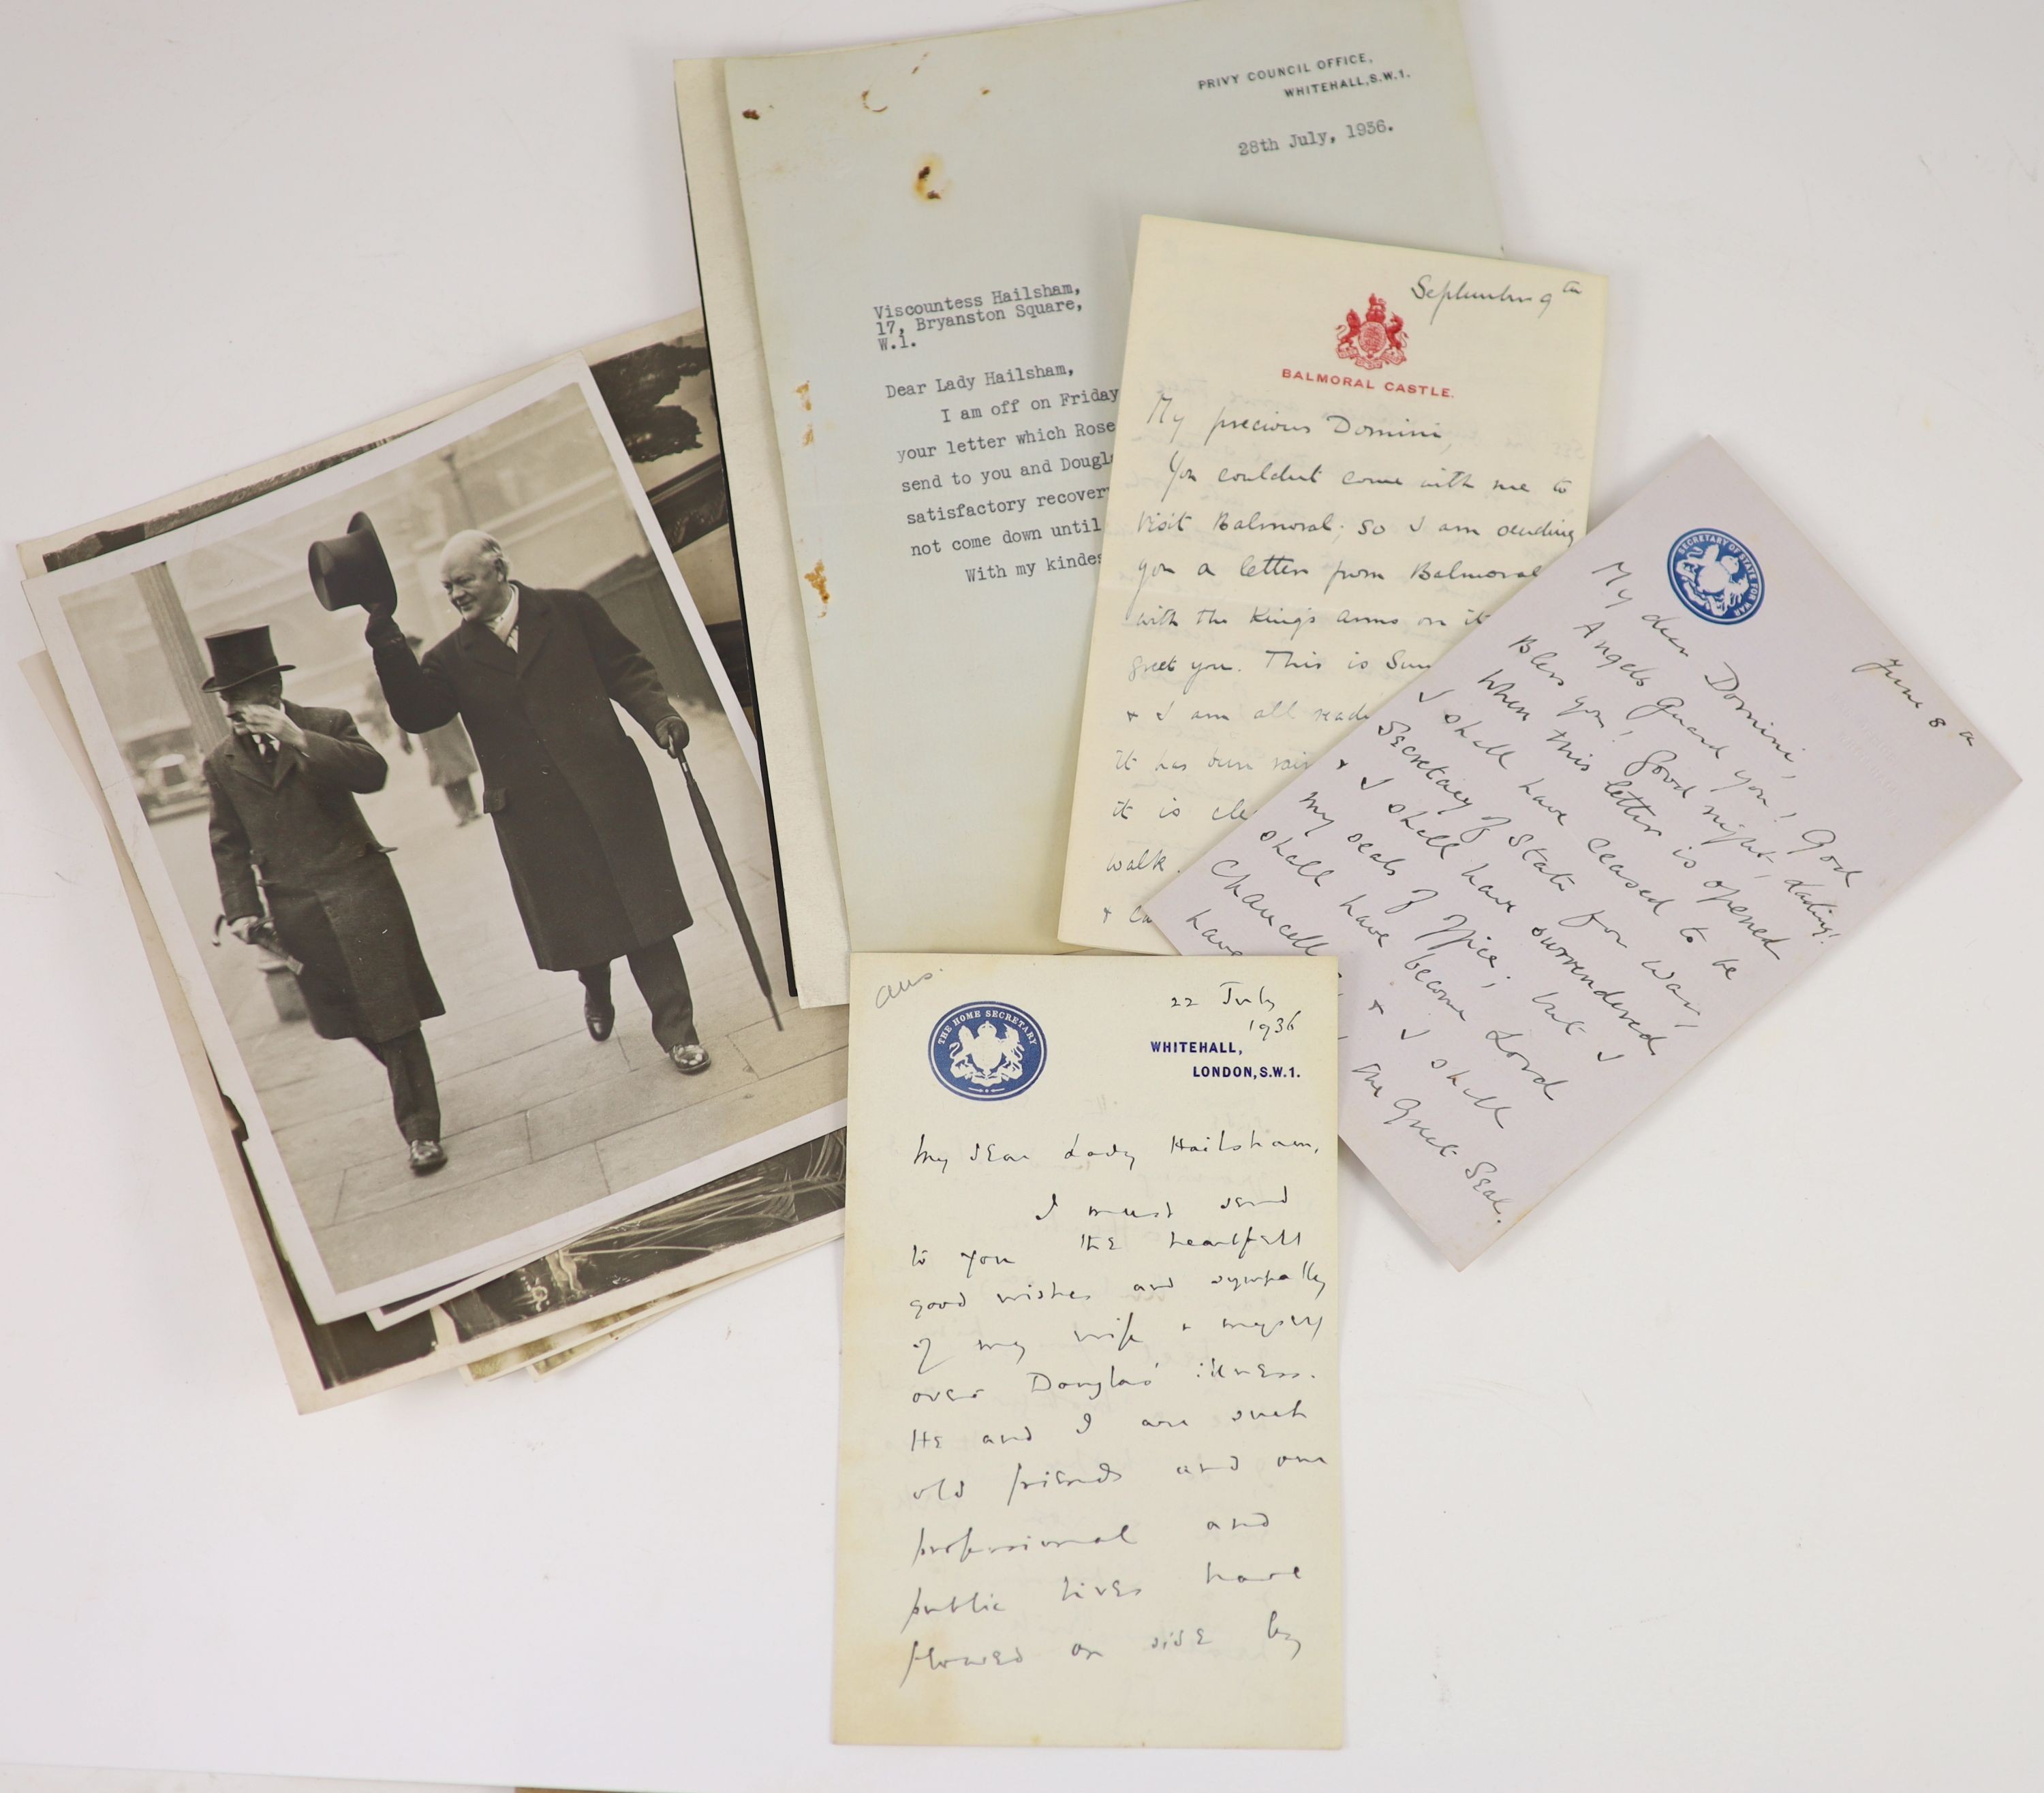 PRIVY COUNCIL OFFICE,
WHITEHALL, S.W.1.
28th July, 1936.
Viscountess Hailsham,
17, Bryanston Square,
W.1.
Dear Lady Hailsham,
I am off on Friday
your letter which Rose
send to you and Dougl
satisfactory recover
not come down until
With my kindes
September 9th
BALMORAL CASTLE.
My precious Domini,
You couldn't come with me to
visit Balmoral; so I am sending
you a letter from Balmoral
with the King's arms on it
greet you. This is Sun
+ I am all read
it has been rai
it is cle
walk.
+ Ca
SECRETARY OF STATE FOR WAR
June 8th
My dear Domini,
Angels Guard you! God
Bless you! Good night, darling!
When this letter is opened
I shall have ceased to be
Secretary of State for War,
+ I shall have surrendered
my seals of office; but I
shall have become Lord
Chancell + I shall
have the Great Seal.
ans.
THE HOME SECRETARY
22 July
1936
WHITEHALL,
LONDON, S.W.1.
My dear Lady Hailsham,
I must send
to you the heartfelt
good wishes and sympathy
of my wife + myself
over Douglas' illness.
He and I are such
old friends and our
professional and
public lives have
flowed on side by